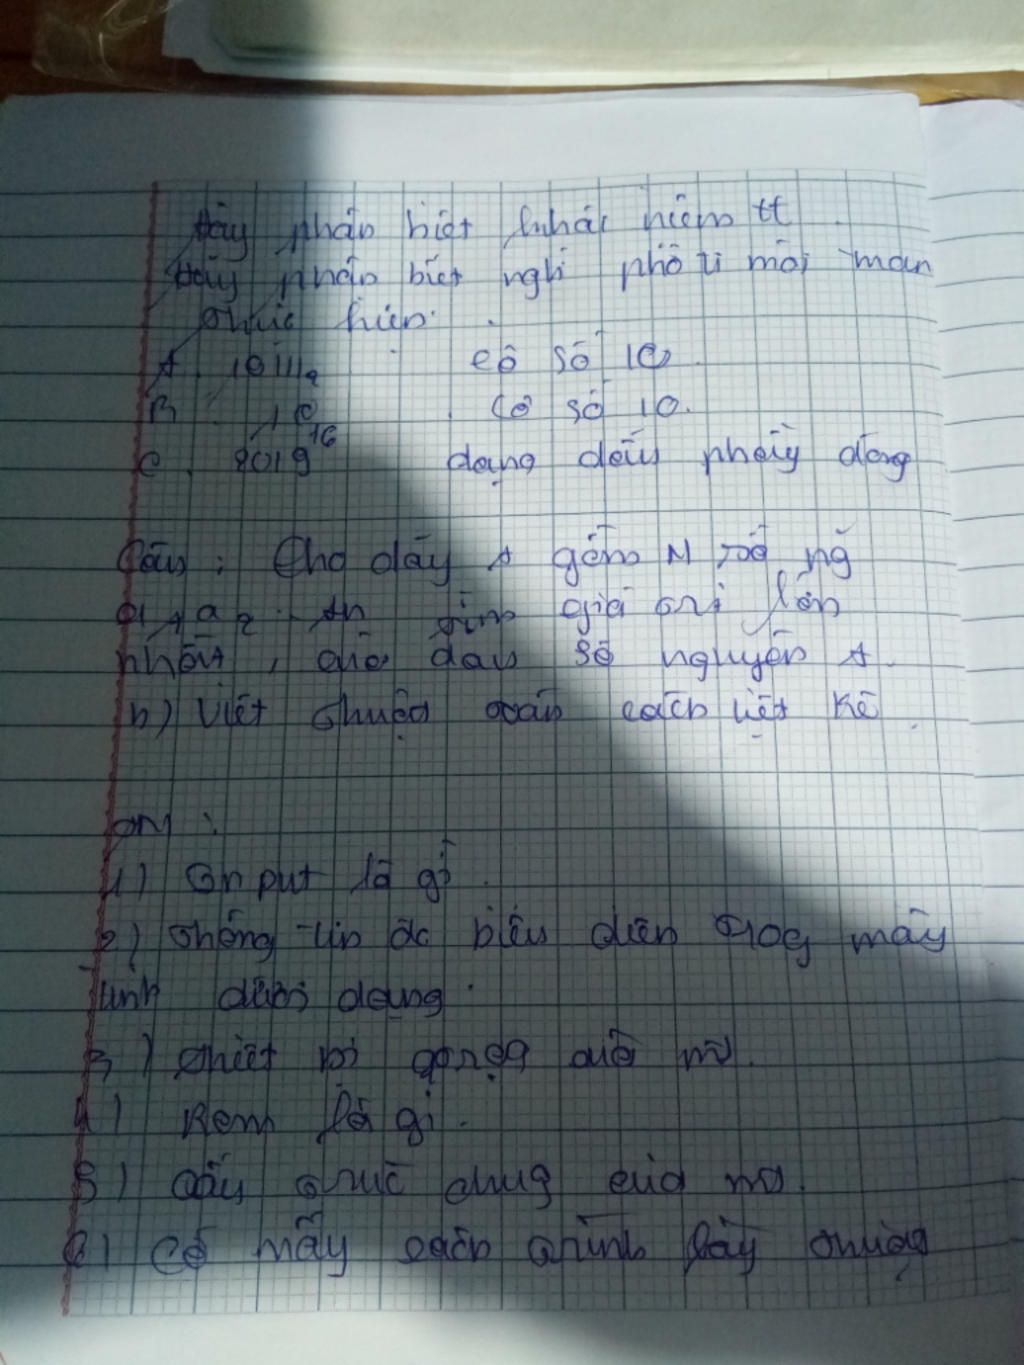 Hãy phân biệt khái niệm tt
Hãy phân biệt nghi
thực hiện.
A. 10111₂ cơ số 10.
B. cơ số 10.
C. 2019 dạng dấu phẩy động
Câu: Cho dãy A gồm N số ng
a₁, a₂ ... An tìm giá trị lớn
nhất, của dãy số nguyên A.
b) Viết thuật toán cách liệt kê
1) Input là gì.
2) Thông tin đc biểu diễn trog máy
tính dưới dạng.
3) thiết bị của mt.
4) Rom là gì.
5) cấu trúc chung của mt.
6) Có mấy cách trình bày thuật